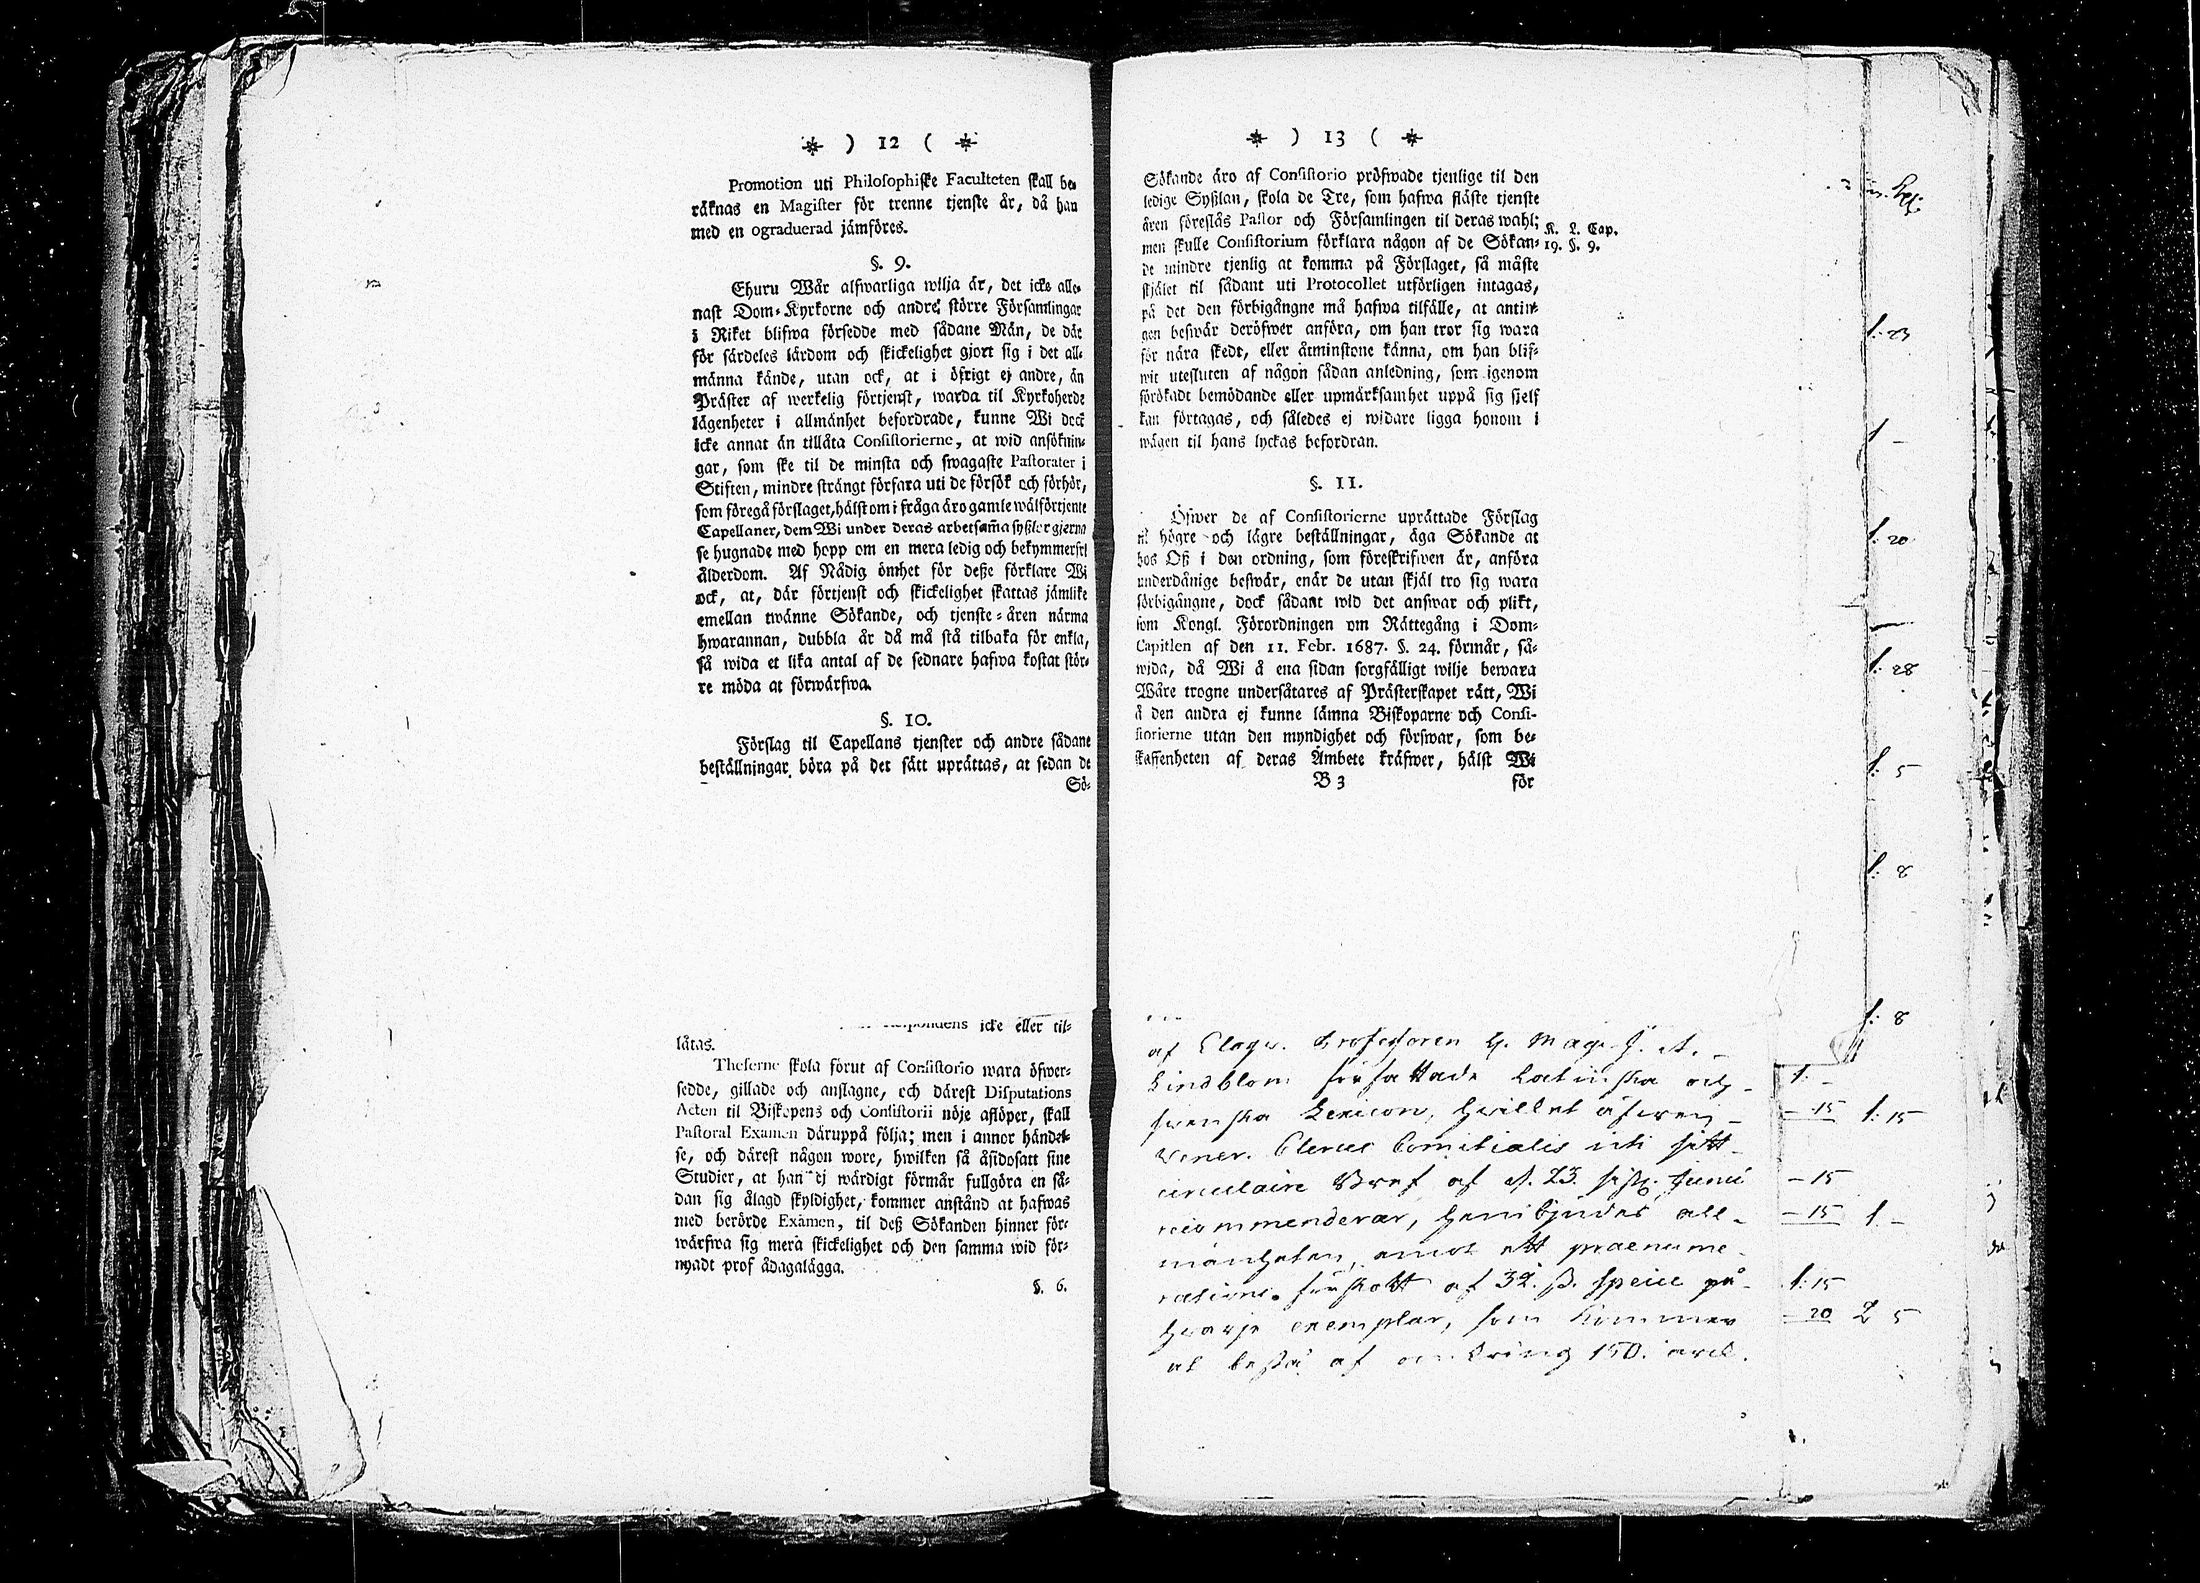 * ) 12 ( *
Promotion uti Philosophiske Faculteten skall be-
räknas en Magister för trenne tjenste år, då han
med en ograduerad jämföres.
§. 9.
Ehuru Wår alfwarliga wilja är, det icke alle-
nast Dom-Kyrkorne och andre större Församlingar
i Riket blifwa försedde med sådane Män, de där
för särdeles lärdom och skickelighet gjort sig i det all-
männa kände, utan ock, at i öfrigt ej andre, än
Präster af werkelig förtjenst, warda til Kyrkoherde
lägenheter i allmänhet befordrade, kunne Wi dock
icke annat än tillåta Consistorierne, at wid ansöknin-
gar, som ske til de minsta och swagaste Pastorater i
Stiften, mindre strängt förfara uti de försök och förhör,
som föregå förslaget, hälst om i fråga äro gamle wälförtjente
Capellaner, dem Wi under deras arbetsama sysslor gjerna
se hugnade med hopp om en mera ledig och bekymmersri
ålderdom. Af Nådig ömhet för desse förklare Wi
ock, at, där förtjenst och skickelighet skattas jämlike
emellan twänne Sökande, och tjenste-åren närma
hwarannan, dubbla år då må stå tilbaka för enkla,
så wida et lika antal af de sednare hafwa kostat stör-
re möda at förwärfwa.
§. 10.
Förslag til Capellans tjenster och andre sådane
beställningar böra på det sätt uprättas, at sedan de
Sö-
icke eller til-
låtas.
Theserne skola förut af Consistorio wara öfwer-
sedde, gillade och anslagne, och därest Disputations
Acten til Biskopens och Consistorii nöje aflöper, skall
Pastoral Examen däruppå följa; men i annor händel-
se, och därest någon wore, hwilken så åsidosatt sine
Studier, at han ej wärdigt förmår fullgöra en så-
dan sig ålagd skyldighet, kommer anstånd at hafwas
med berörde Examen, til dess Sökanden hinner för-
wärfwa sig mera skickelighet och den samma wid för-
nyadt prof ådagalägga.
§. 6.
* ) 13 ( *
Sökande äro af Consistorio pröfwade tjenlige til den
ledige Sysslan, skola de Tre, som hafwa fläste tjenste
åren föreslås Pastor och Församlingen til deras wahl;
men skulle Consistorium förklara någon af de Sökan-
de mindre tjenlig at komma på Förslaget, så måste
skjälet til sådant uti Protocollet utförligen intagas,
på det den förbigångne må hafwa tilfälle, at antin-
gen beswär deröfwer anföra, om han tror sig wara
för nära skedt, eller åtminstone känna, om han blif-
wit utesluten af någon sådan anledning, som igenom
förökadt bemödande eller upmärksamhet uppå sig sjelf
kan förtagas, och således ej widare ligga honom i
wägen til hans lyckas befordran.
K. L. Cap.
19. §. 9.
§. 11.
Öfwer de af Consistorierne uprättade Förslag
til högre och lägre beställningar, äga Sökande at
hos Oss i den ordning, som föreskrifwen är, anföra
underdånige beswär, enär de utan skjäl tro sig wara
förbigångne, dock sådant wid det answar och plikt,
som Kongl. Förordningen om Rättegång i Dom-
Capitlen af den 11. Febr. 1687. §. 24. förmår, så-
wida, då Wi å ena sidan sorgfälligt wilje bewara
Wåre trogne undersåtares af Prästerskapet rätt, Wi
å den andra ej kunne lämna Biskoparne och Consi-
storierne utan den myndighet och förswar, som be-
skaffenheten af deras Ämbete kräfwer, hälst Wi
B 3 för
af Professoren H. Mag. J. A.
Lindblom författade Latinska och
Svenska Lexicon, hwilket äfwen
Vener. Clerus Comitialis uti sitt
circulaire Bref af d. 23. sistl. Junii
recommenderar, hembjudes all-
mänheten, emot ett praenume-
rations förskott af 32. ß. Specie på
hwarje exemplar, som kommer
at bestå af omkring 150. arck.
1: 23
1 -
1: 20
1: 28
1: 5
1: 8
1: 8
1: -
- 15 1: 15
- 15
- 15 1 -
1: 15
- 20 2 5